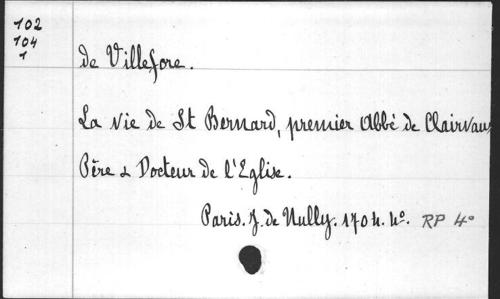 102
104
1
de Villefore.
La vie de St Bernard, premier Abbé de Clairvaux,
Père & Docteur de l'Eglise.
Paris. J. de Nully. 1704. 4º. RP 4º